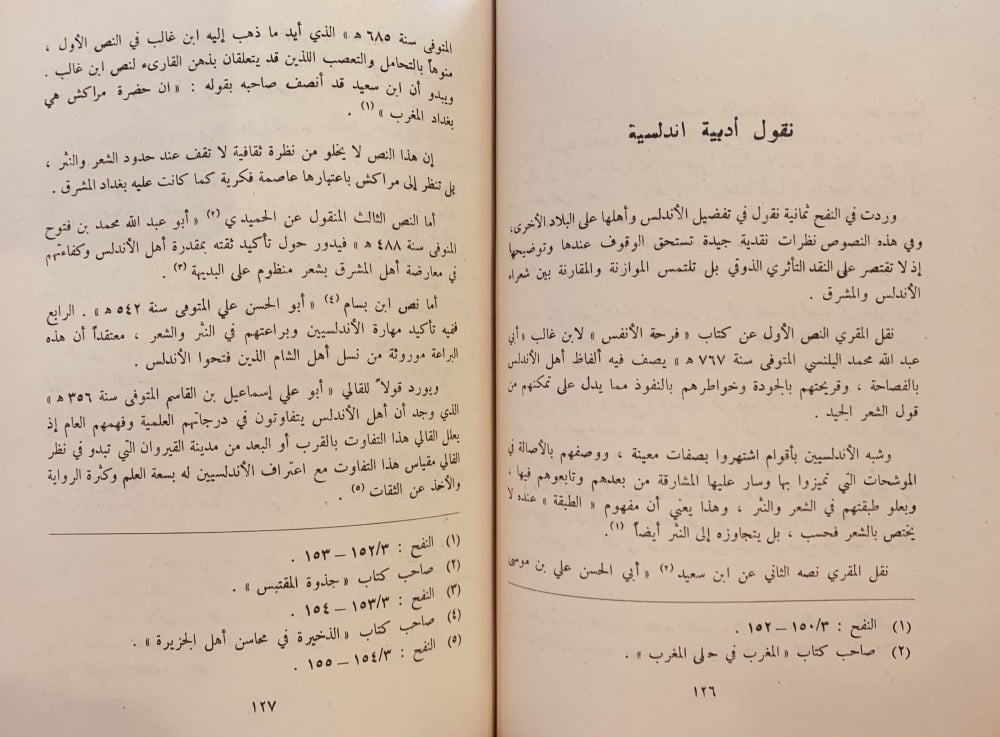 نقول أدبية اندلسية
وردت في النفح ثمانية نقول في تفضيل الأندلس وأهلها على البلاد الأخرى،
وفي هذه النصوص نظرات نقدية جيدة تستحق الوقوف عندها وتوضيحها
إذ لا تقتصر على النقد التأثري الذوقي بل تلتمس الموازنة والمقارنة بين شعراء
الأندلس والمشرق .
نقل المقري النص الأول عن كتاب « فرحة الأنفس » لابن غالب « أبي
عبد الله محمد البلنسي المتوفى سنة ٧٦٧ ه » يصف فيه ألفاظ أهل الأندلس
بالفصاحة ، وقريحتهم بالجودة وخواطرهم بالنفوذ مما يدل على تمكنهم من
قول الشعر الجيد .
وشبه الأندلسيين بأقوام اشتهروا بصفات معينة ، ووصفهم بالأصالة في
الموشحات التي تميزوا بها وسار عليها المشارقة من بعدهم وتابعوهم فيها ،
وبعلو طبقتهم في الشعر والنثر ، وهذا يعني أن مفهوم « الطبقة » عنده لا
يختص بالشعر فحسب ، بل يتجاوزه إلى النثر أيضاً (١).
نقل المقري نصه الثاني عن ابن سعيد (٢) « أبي الحسن علي بن موسى
(١) النفح : ٣/١٥٠ – ١٥٢ .
(٢) صاحب كتاب « المغرب في حلى المغرب » .
١٢٦
المتوفى سنة ٦٨٥ ه » الذي أيد ما ذهب إليه ابن غالب في النص الأول ،
منوهاً بالتحامل والتعصب اللذين قد يتعلقان بذهن القارىء لنص ابن غالب .
ويبدو أن ابن سعيد قد أنصف صاحبه بقوله : « ان حضرة مراكش هي
بغداد المغرب » (١) .
إن هذا النص لا يخلو من نظرة ثقافية لا تقف عند حدود الشعر والنثر ،
بل تنظر إلى مراكش باعتبارها عاصمة فكرية كما كانت عليه بغداد المشرق .
أما النص الثالث المنقول عن الحميدي (٢) « أبو عبد الله محمد بن فتوح
المتوفى سنة ٤٨٨ ه » فيدور حول تأكيد ثقته بمقدرة أهل الأندلس وكفاءتهم
في معارضة أهل المشرق بشعر منظوم على البديهة (٣) .
أما نص ابن بسام (٤) « أبو الحسن علي المتوفى سنة ٥٤٢ ه » . الرابع
ففيه تأكيد مهارة الأندلسيين وبراعتهم في النثر والشعر ، معتقداً أن هذه
البراعة موروثة من نسل أهل الشام الذين فتحوا الأندلس .
ويورد قولاً للقالي « أبو علي إسماعيل بن القاسم المتوفى سنة ٣٥٦ ه »
الذي وجد أن أهل الأندلس يتفاوتون في درجاتهم العلمية وفهمهم العام إذ
يعلل القالي هذا التفاوت بالقرب أو البعد من مدينة القيروان التي تبدو في نظر
القالي مقياس هذا التفاوت مع اعتراف الأندلسيين له بسعة العلم وكثرة الرواية
والأخذ عن الثقات (٥) .
(١) النفح : ٣/١٥٢ – ١٥٣ .
(٢) صاحب كتاب « جذوة المقتبس » .
(٣) النفح : ٣/١٥٣ – ١٥٤ .
(٤) صاحب كتاب « الذخيرة في محاسن أهل الجزيرة » .
(٥) النفح : ٣/١٥٤ – ١٥٥ .
١٢٧